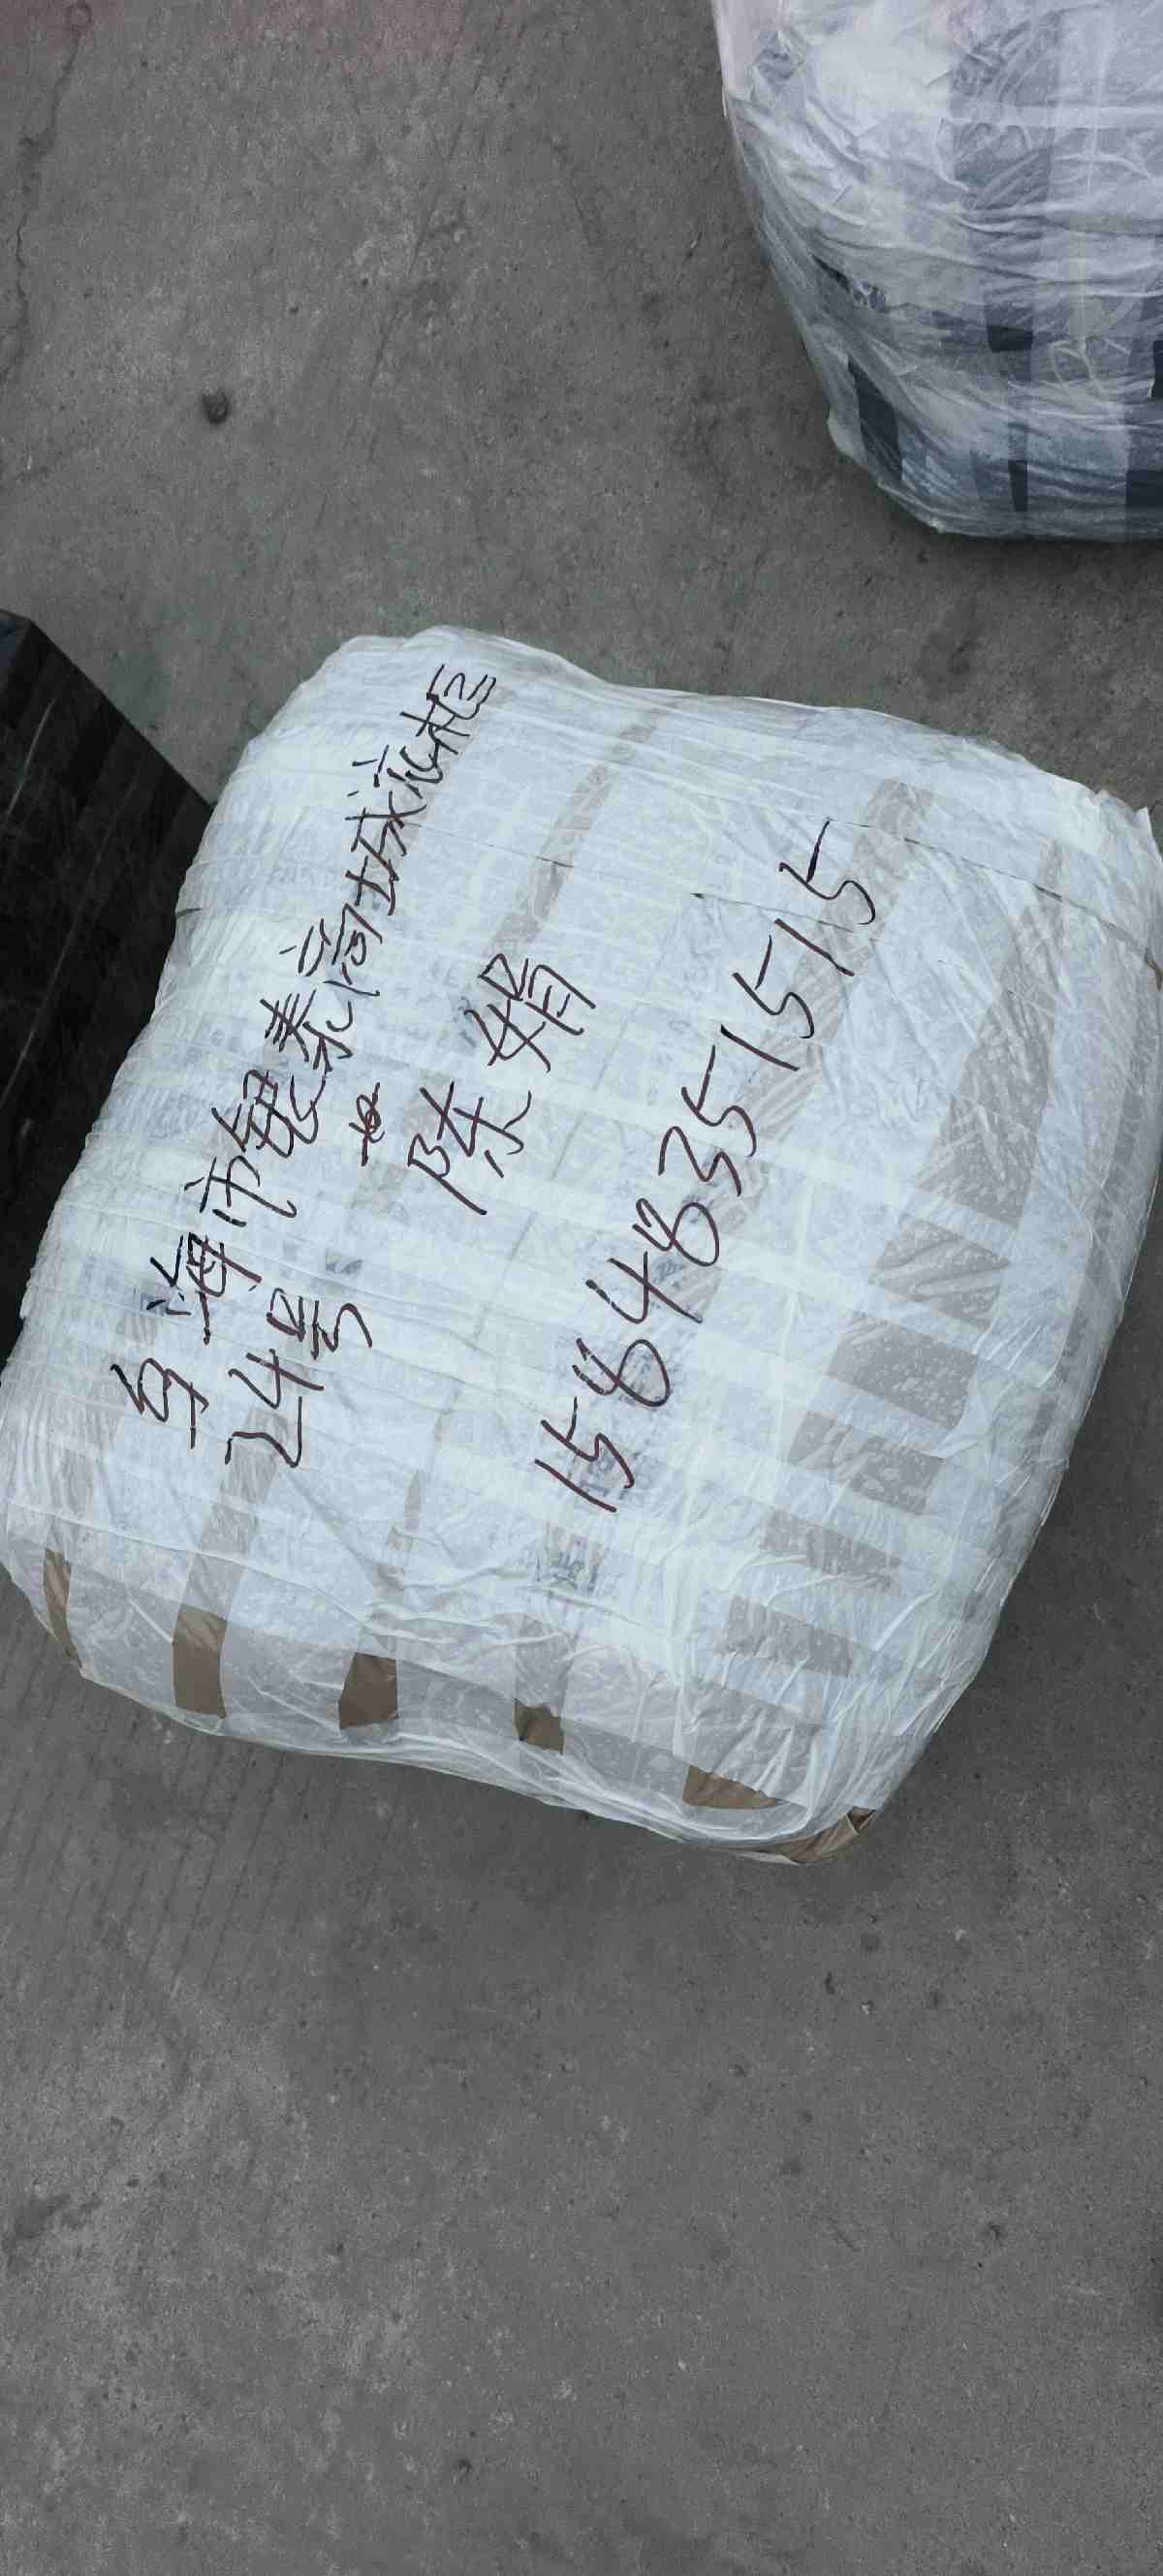 乌海市银泰商城产柜
24号
陈娟
15848351515